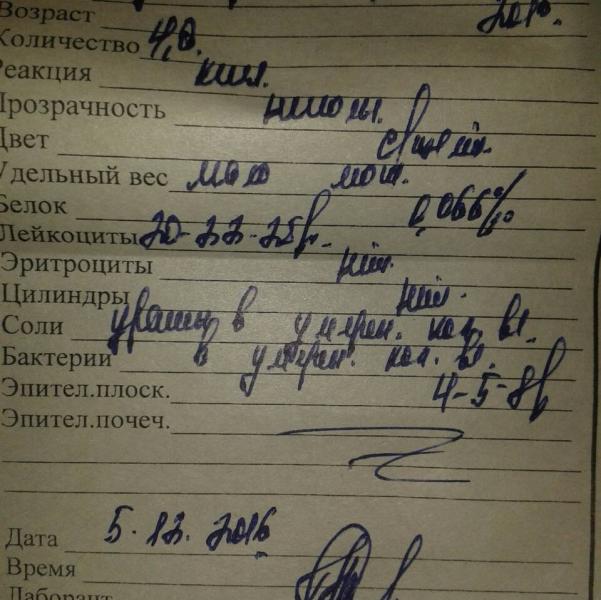 Возраст 20
Количество 4,0.
Реакция кисл.
Прозрачность
Цвет
Удельный вес мало моч.
Белок 0,066‰
Лейкоциты 20-22-25
Эритроциты
Цилиндры
Соли ураты в умерен. кол. ве.
Бактерии в умерен. кол. ве.
Эпител.плоск. 4-5-8
Эпител.почеч.
Дата 5.12.2016
Время
Лаборант